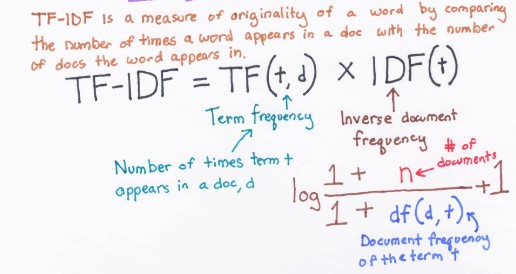 TF-IDF is a measure of originality of a word by comparing
the number of times a word appears in a doc with the number
of docs the word appears in.
TF-IDF = TF(t, d) × IDF(t)
Term frequency
Inverse document
frequency
Number of times term t
appears in a doc, d
# of
documents
log 1 + n / 1 + df(d, t) + 1
Document frequency
of the term t